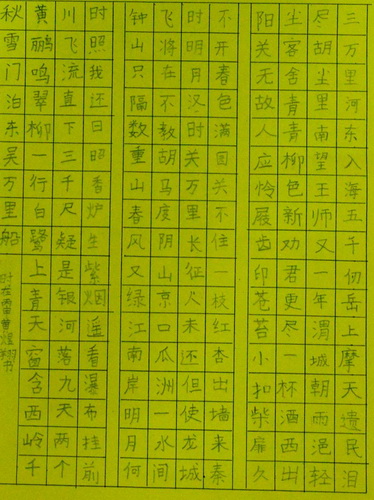 三万里河东入海五千仞岳上摩天遗民泪
尽胡尘里南望王师又一年渭城朝雨浥轻
尘客舍青青柳色新劝君更尽一杯酒西出
阳关无故人应怜屐齿印苍苔小扣柴扉久
不开春色满园关不住一枝红杏出墙来秦
时明月汉时关万里长征人未还但使龙城
飞将在不教胡马度阴山京口瓜洲一水间
钟山只隔数重山春风又绿江南岸明月何
时照我还日照香炉生紫烟遥看瀑布挂前
川飞流直下三千尺疑是银河落九天两个
黄鹂鸣翠柳一行白鹭上青天窗含西岭千
秋雪门泊东吴万里船